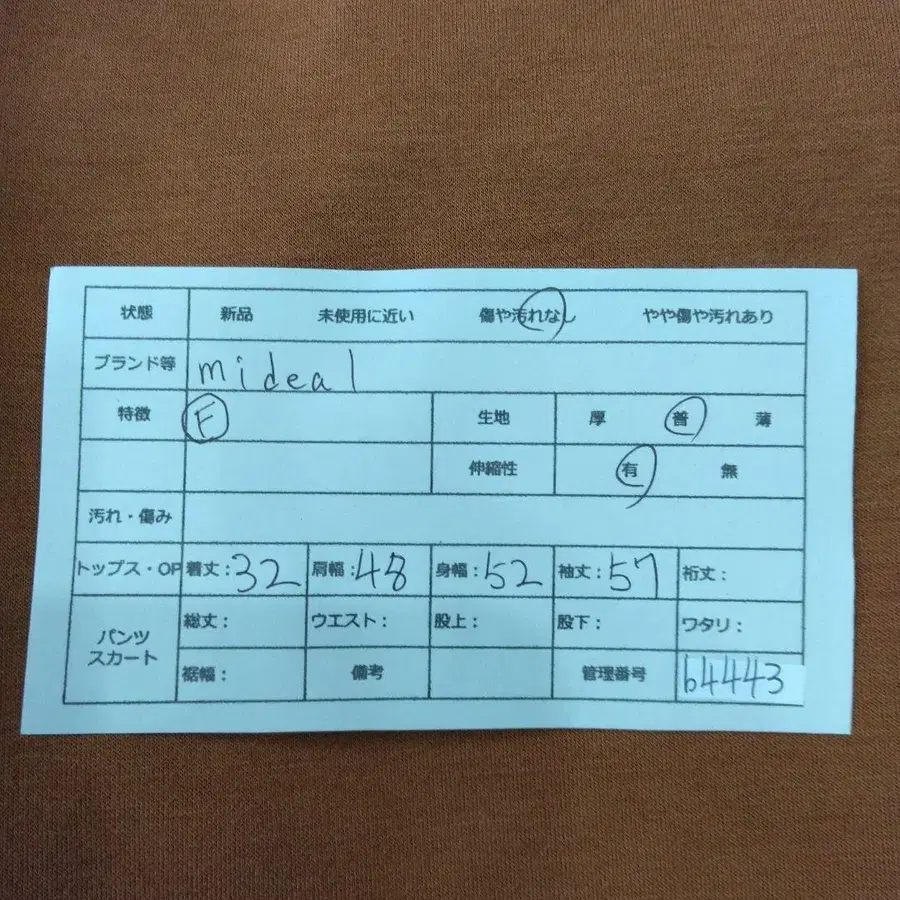 状態 新品 未使用に近い 傷や汚れなし やや傷や汚れあり
ブランド等 mideal
特徴 F 生地 厚 普 薄
伸縮性 有 無
汚れ・傷み
トップス・OP 着丈:32 肩幅:48 身幅:52 袖丈:57 裄丈:
パンツ スカート 総丈: ウエスト: 股上: 股下: ワタリ:
裾幅: 備考 管理番号 64443